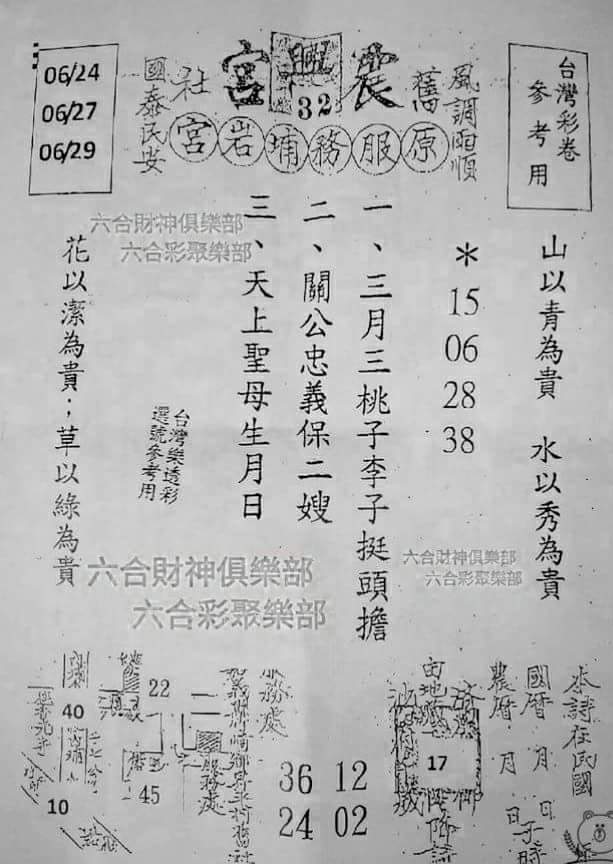 06/24
06/27
06/29
國泰民安
社
宮興震
32
舊
風調雨順
宮岩埔務服原
台灣彩卷
參考用
山以青為貴 水以秀為貴
*
15
06
28
38
一、三月三桃子李子挺頭擔
二、關公忠義保二嫂
三、天上聖母生月日
六合財神俱樂部
六合彩聚樂部
花以潔為貴；草以綠為貴
台灣樂透彩
選號參考用
六合財神俱樂部
六合彩聚樂部
六合財神俱樂部
六合彩聚樂部
本詩在民國
國曆 月 日
農曆 月 日子時
17
36 12
24 02
服務處
22
40
45
10